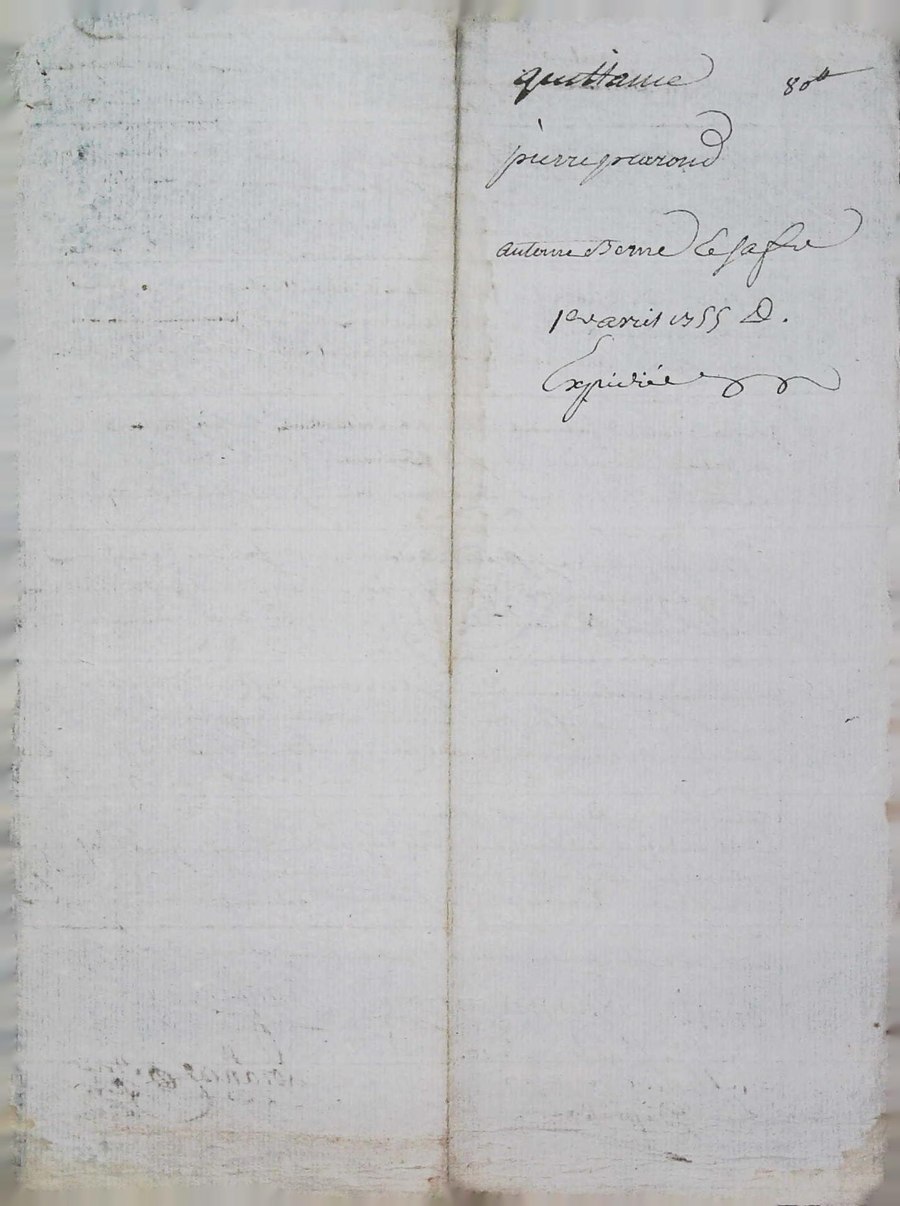 quittance 80ᵗᵗ
pierre pearond
antoine Berne Le jaffre
1er avril 1755 D.
Expédiée